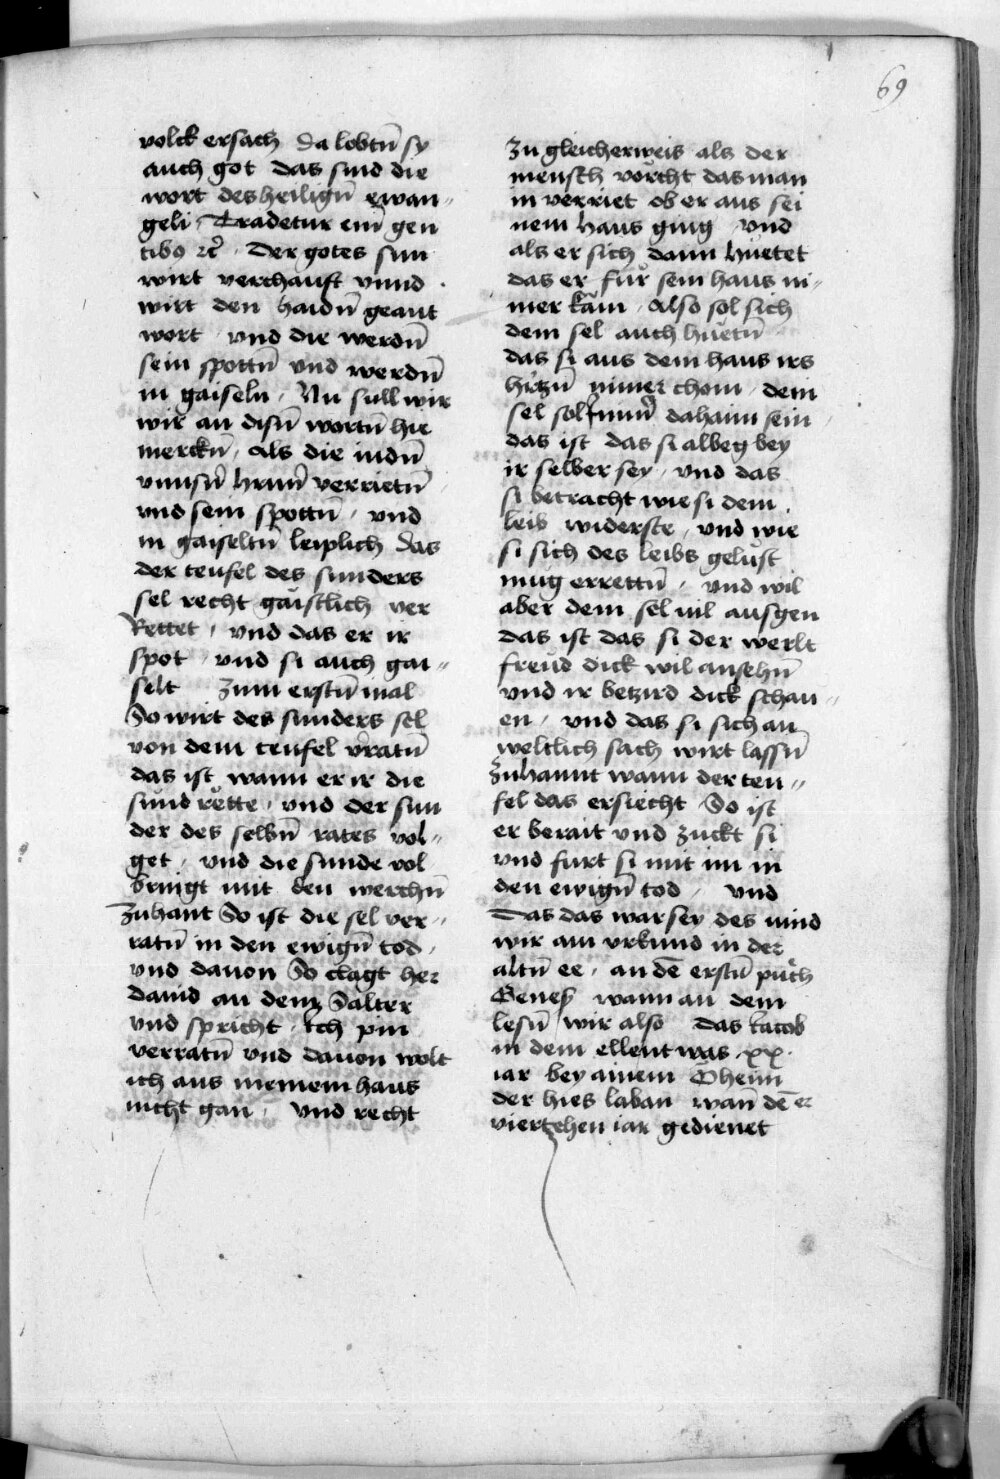 69
volck ersach da lobtn̄ sy
auch got das sind die
wort des heilign̄ ewan〃
geli Tradetur eni᷃ gen
tibꝯ ⁊c̄ · Der gotes sun
wirt verchauft vnnd
wirt den haidn̄ geant
wort · vnd die werdn̄
sein spottn̄ vnd werdn̄
in gaiseln · Nu sull wir
wir an disn̄ wortn̄ hie
merckn̄ · Als die iudn̄
vnnsn̄ hrnn̄ verrietn̄
vnd sein spottn̄ · vnd
in gaiseltn̄ leiplich das
der teufel des sunders
sel recht gaistlich ver
Rettet · vnd das er ir
spot · vnd si auch gai〃
selt zum erstn̄ mal
So wirt des sunders sel
von dem teufel v̄ratn̄
das ist wann er ir die
sund rette · vnd der sun
der des selbn̄ rates vol〃
get · vnd die sunde vol
bringt mit den werchn̄
Zuhant So ist die sel ver〃
ratn̄ in den ewign̄ tod ·
vnd dauon So clagt her
dauid an dem Salter
vnd spricht · Ich pin
verratn̄ vnd dauon wolt
ich aus meinem haus
nicht gan · vnd recht
Zu gleicherweis als der
mensch vorcht das man
in verriet ob er aus sei
nem haus ging vnd
als er sich dann huetet
das er für sein haus ni〃
mer kam · Also sol sich
dem sel auch huetn̄
das si aus dem haus irs
hrtzn̄ nimer chom · dein
sel sol ĩmm̄ dahaim sein
das ist das si albeg bey
ir selber sey · vnd das
si betracht wie si dem
leib widerste · vnd wie
si sich des leibs gelust
mug errettn̄ · vnd wil
aber dem sel uil ausgen
das ist das si der werlt
freud dick wil ansehn̄
vnd ir betzird dick schau〃
en · vnd das si sich an
weltlich sach wirt lassn̄
Zuhannt wann der teu〃
fel das ersiecht So ist
er berait vnd zuckt si
vnd furt si mit im in
den ewign̄ tod · vnd
Das das war sey des uind
wir ain vrkund in der
altn̄ ee · an dē erstn̄ půch
Genesꝭ wann an dem
lesn̄ wir also das Iacob
in dem ellent was ·xx·
iar bey ainem Oheim
der hies laban wan̄ dē er
viertzehen iar gedienet